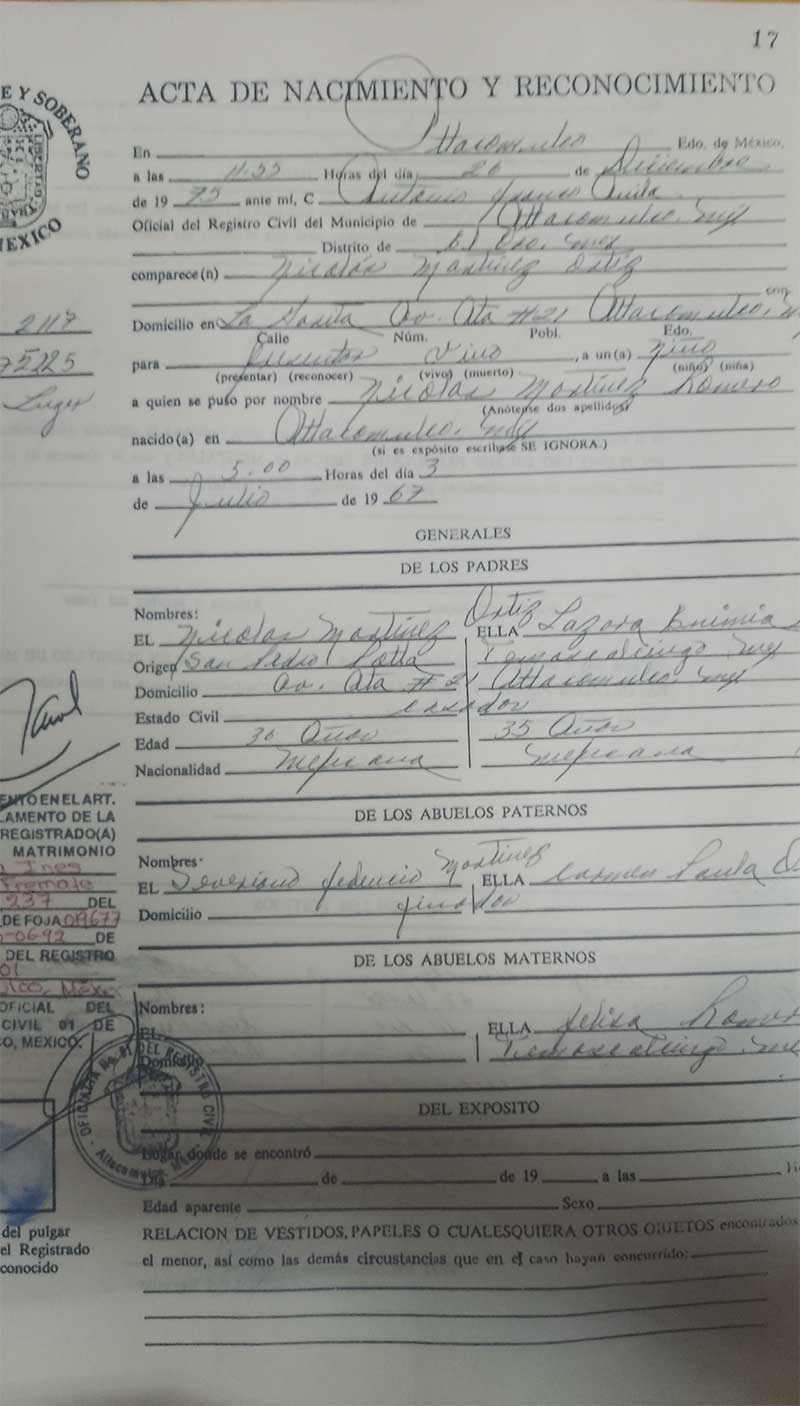 17
E Y SOBERANO
MEXICO
ACTA DE NACIMIENTO Y RECONOCIMIENTO
En Atlacomulco Edo. de México,
a las 11.55 Horas del día 26 de Diciembre
de 1975 ante mí, C Antonio
Oficial del Registro Civil del Municipio de Atlacomulco, Mex
Distrito de El Oro, Mex
comparece(n) Nicolás Martínez Ortíz
con
2117
Domicilio en La Av. # 21 Atlacomulco,
Calle Núm. Pobl. Edo.
75125
para Presentar Vivo, a un(a) Niño
(presentar) (reconocer) (vivo) (muerto) (niño) (niña)
Luger
a quien se puso por nombre Nicolas Martínez Romero
(Anótense dos apellidos)
nacido(a) en Atlacomulco, Mex
(si es expósito escríbase SE IGNORA.)
a las 5.00 Horas del día 3
de Julio de 1967
GENERALES
DE LOS PADRES
Nombres:
EL Nicolas Martínez Ortíz ELLA Lazara
Origen San Pedro Temascalcingo Mex
Domicilio Av. # 21 Atlacomulco, Mex
Estado Civil casados
Edad 36 Años 35 Años
Nacionalidad Mexicana Mexicana
ENTO EN EL ART.
LAMENTO DE LA
REGISTRADO(A)
MATRIMONIO
Ines
237 DEL
DE FOJA 019677
-0692 DE
DEL REGISTRO
01
Méx.
OFICIAL DEL
CIVIL 01 DE
CO, MEXICO.
DE LOS ABUELOS PATERNOS
Nombres:
EL Severiano Martínez ELLA Carmen Paula O
Domicilio finados
DE LOS ABUELOS MATERNOS
Nombres:
EL ELLA
Domicilio Temascalcingo
OFICIALIA No. 01 DEL REGISTRO CIVIL
Atlacomulco, Mex.
DEL EXPOSITO
Lugar donde se encontró
Día de de 19 a las
Edad aparente Sexo
del pulgar
el Registrado
conocido
RELACION DE VESTIDOS, PAPELES O CUALESQUIERA OTROS OBJETOS encontrados
el menor, así como las demás circustancias que en el caso hayan concurrido: